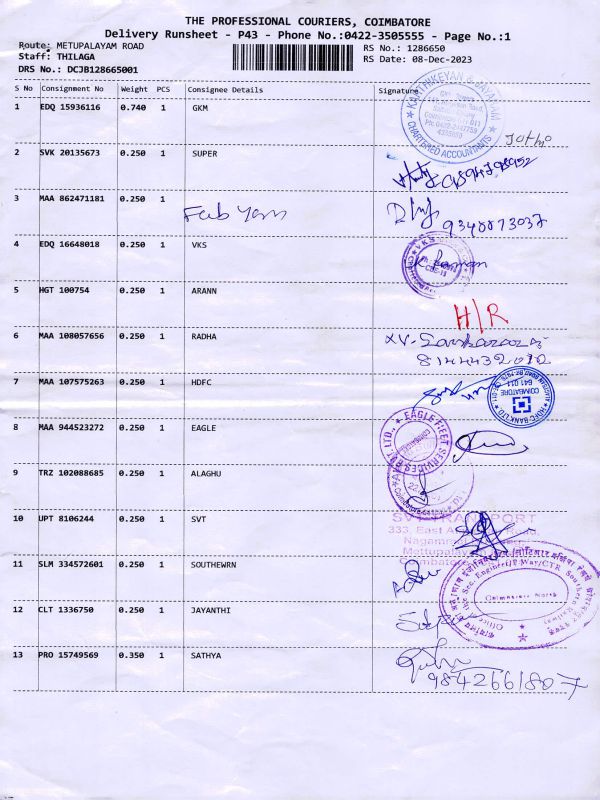 THE PROFESSIONAL COURIERS, COIMBATORE
Delivery Runsheet - P43 - Phone No.:0422-3505555 - Page No.:1
Route: METUPALAYAM ROAD RS No.: 1286650
Staff: THILAGA RS Date: 08-Dec-2023
DRS No.: DCJB128665001
S No Consignment No Weight PCS Consignee Details Signature
1 EDQ 15936116 0.740 1 GKM
KARTHIKEYAN & JAYARAM
CHARTERED ACCOUNTANTS
Jothi
2 SVK 20135673 0.250 1 SUPER
3 MAA 862471181 0.250 1 Fab Yam
9340873037
4 EDQ 16648018 0.250 1 VKS
Raman
5 HGT 100754 0.250 1 ARANN
H/R
6 MAA 108057656 0.250 1 RADHA
8144432012
7 MAA 107575263 0.250 1 HDFC
HDFC BANK LTD
COIMBATORE
641 011
8 MAA 944523272 0.250 1 EAGLE
EAGLE FLEET SERVICES
9 TRZ 102088685 0.250 1 ALAGHU
10 UPT 8106244 0.250 1 SVT
SVT TRANSPORT
333, East Road,
11 SLM 334572601 0.250 1 SOUTHEWRN
Coimbatore North
12 CLT 1336750 0.250 1 JAYANTHI
13 PRO 15749569 0.350 1 SATHYA
9842661807